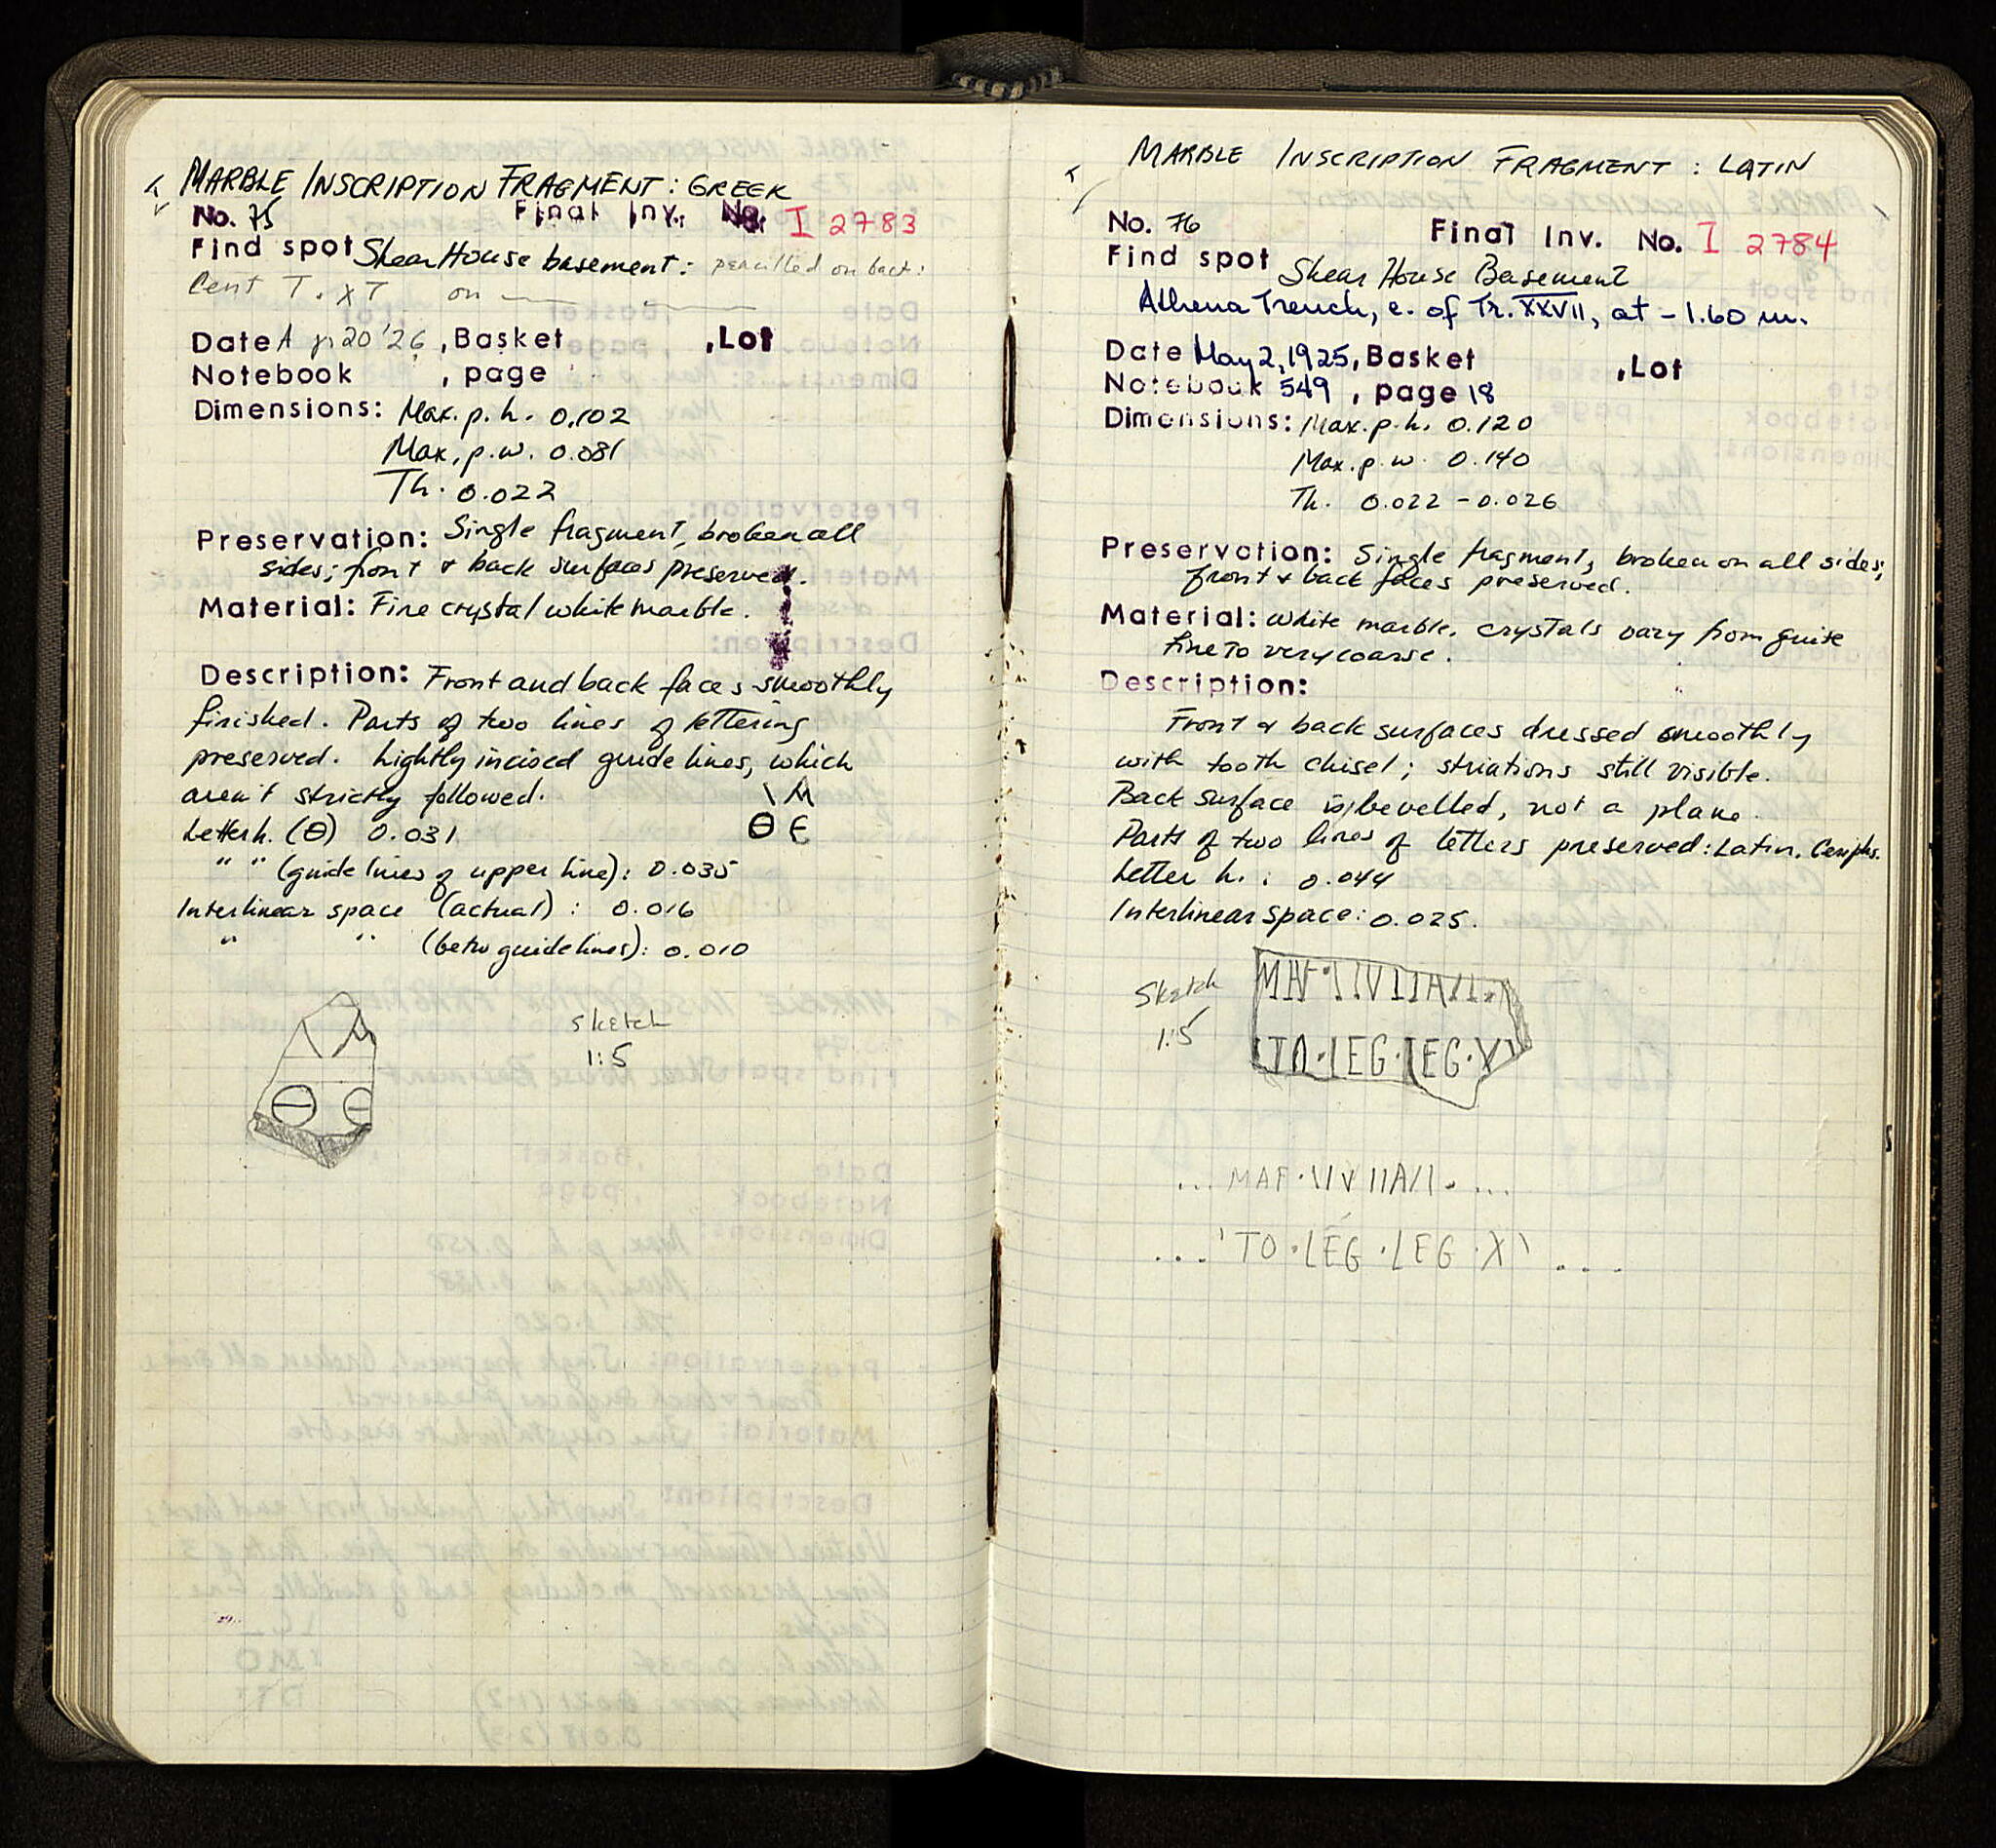 MARBLE INSCRIPTION FRAGMENT: GREEK
No. 75 Final Inv. No. I 2783
Find spot Shear House basement: pencilled on back:
Cent T. XT on
Date Apr 20 '26, Basket , Lot
Notebook , page
Dimensions: Max. p. h. 0.102
Max. p. w. 0.081
Th. 0.022
Preservation: Single fragment, broken all
sides; front & back surfaces preserved.
Material: Fine crystal white marble.
Description: Front and back faces smoothly
finished. Parts of two lines of lettering
preserved. Lightly incised guide lines, which
aren't strictly followed.
Letter h. (Θ) 0.031 Θ Ε
" " (guide lines of upper line): 0.035
Interlinear space (actual): 0.016
" " (betw guidelines): 0.010
Sketch
1:5
MARBLE INSCRIPTION FRAGMENT: LATIN
No. 76 Final Inv. No. I 2784
Find spot Shear House Basement
Athena Trench, e. of Tr. XXVII, at -1.60 m.
Date May 2, 1925, Basket , Lot
Notebook 549, page 18
Dimensions: Max. p. h. 0.120
Max. p. w. 0.140
Th. 0.022 - 0.026
Preservation: Single fragment, broken on all sides;
front & back faces preserved.
Material: White marble, crystals vary from quite
fine to very coarse.
Description:
Front & back surfaces dressed smoothly
with tooth chisel; striations still visible.
Back surface is bevelled, not a plane.
Parts of two lines of letters preserved: Latin. Ceriphs.
Letter h.: 0.044
Interlinear space: 0.025.
Sketch
1:5
TO·LEG·LEG·X
... MAF·\IVIIA/I. ...
....'TO·LEG·LEG·X\ ....